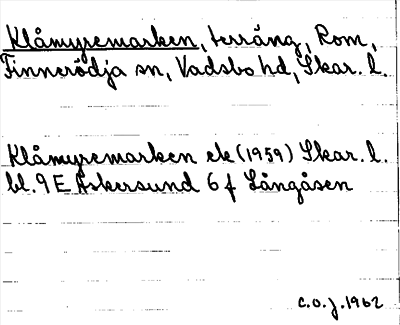 Klåmyremarken, terräng, Rom,
Finnerödja sn, Vadsbo hd, Skar. l.
Klåmyremarken ek (1959) Skar. l.
bl. 9 E Askersund 6 f Långåsen
C.O.J. 1962